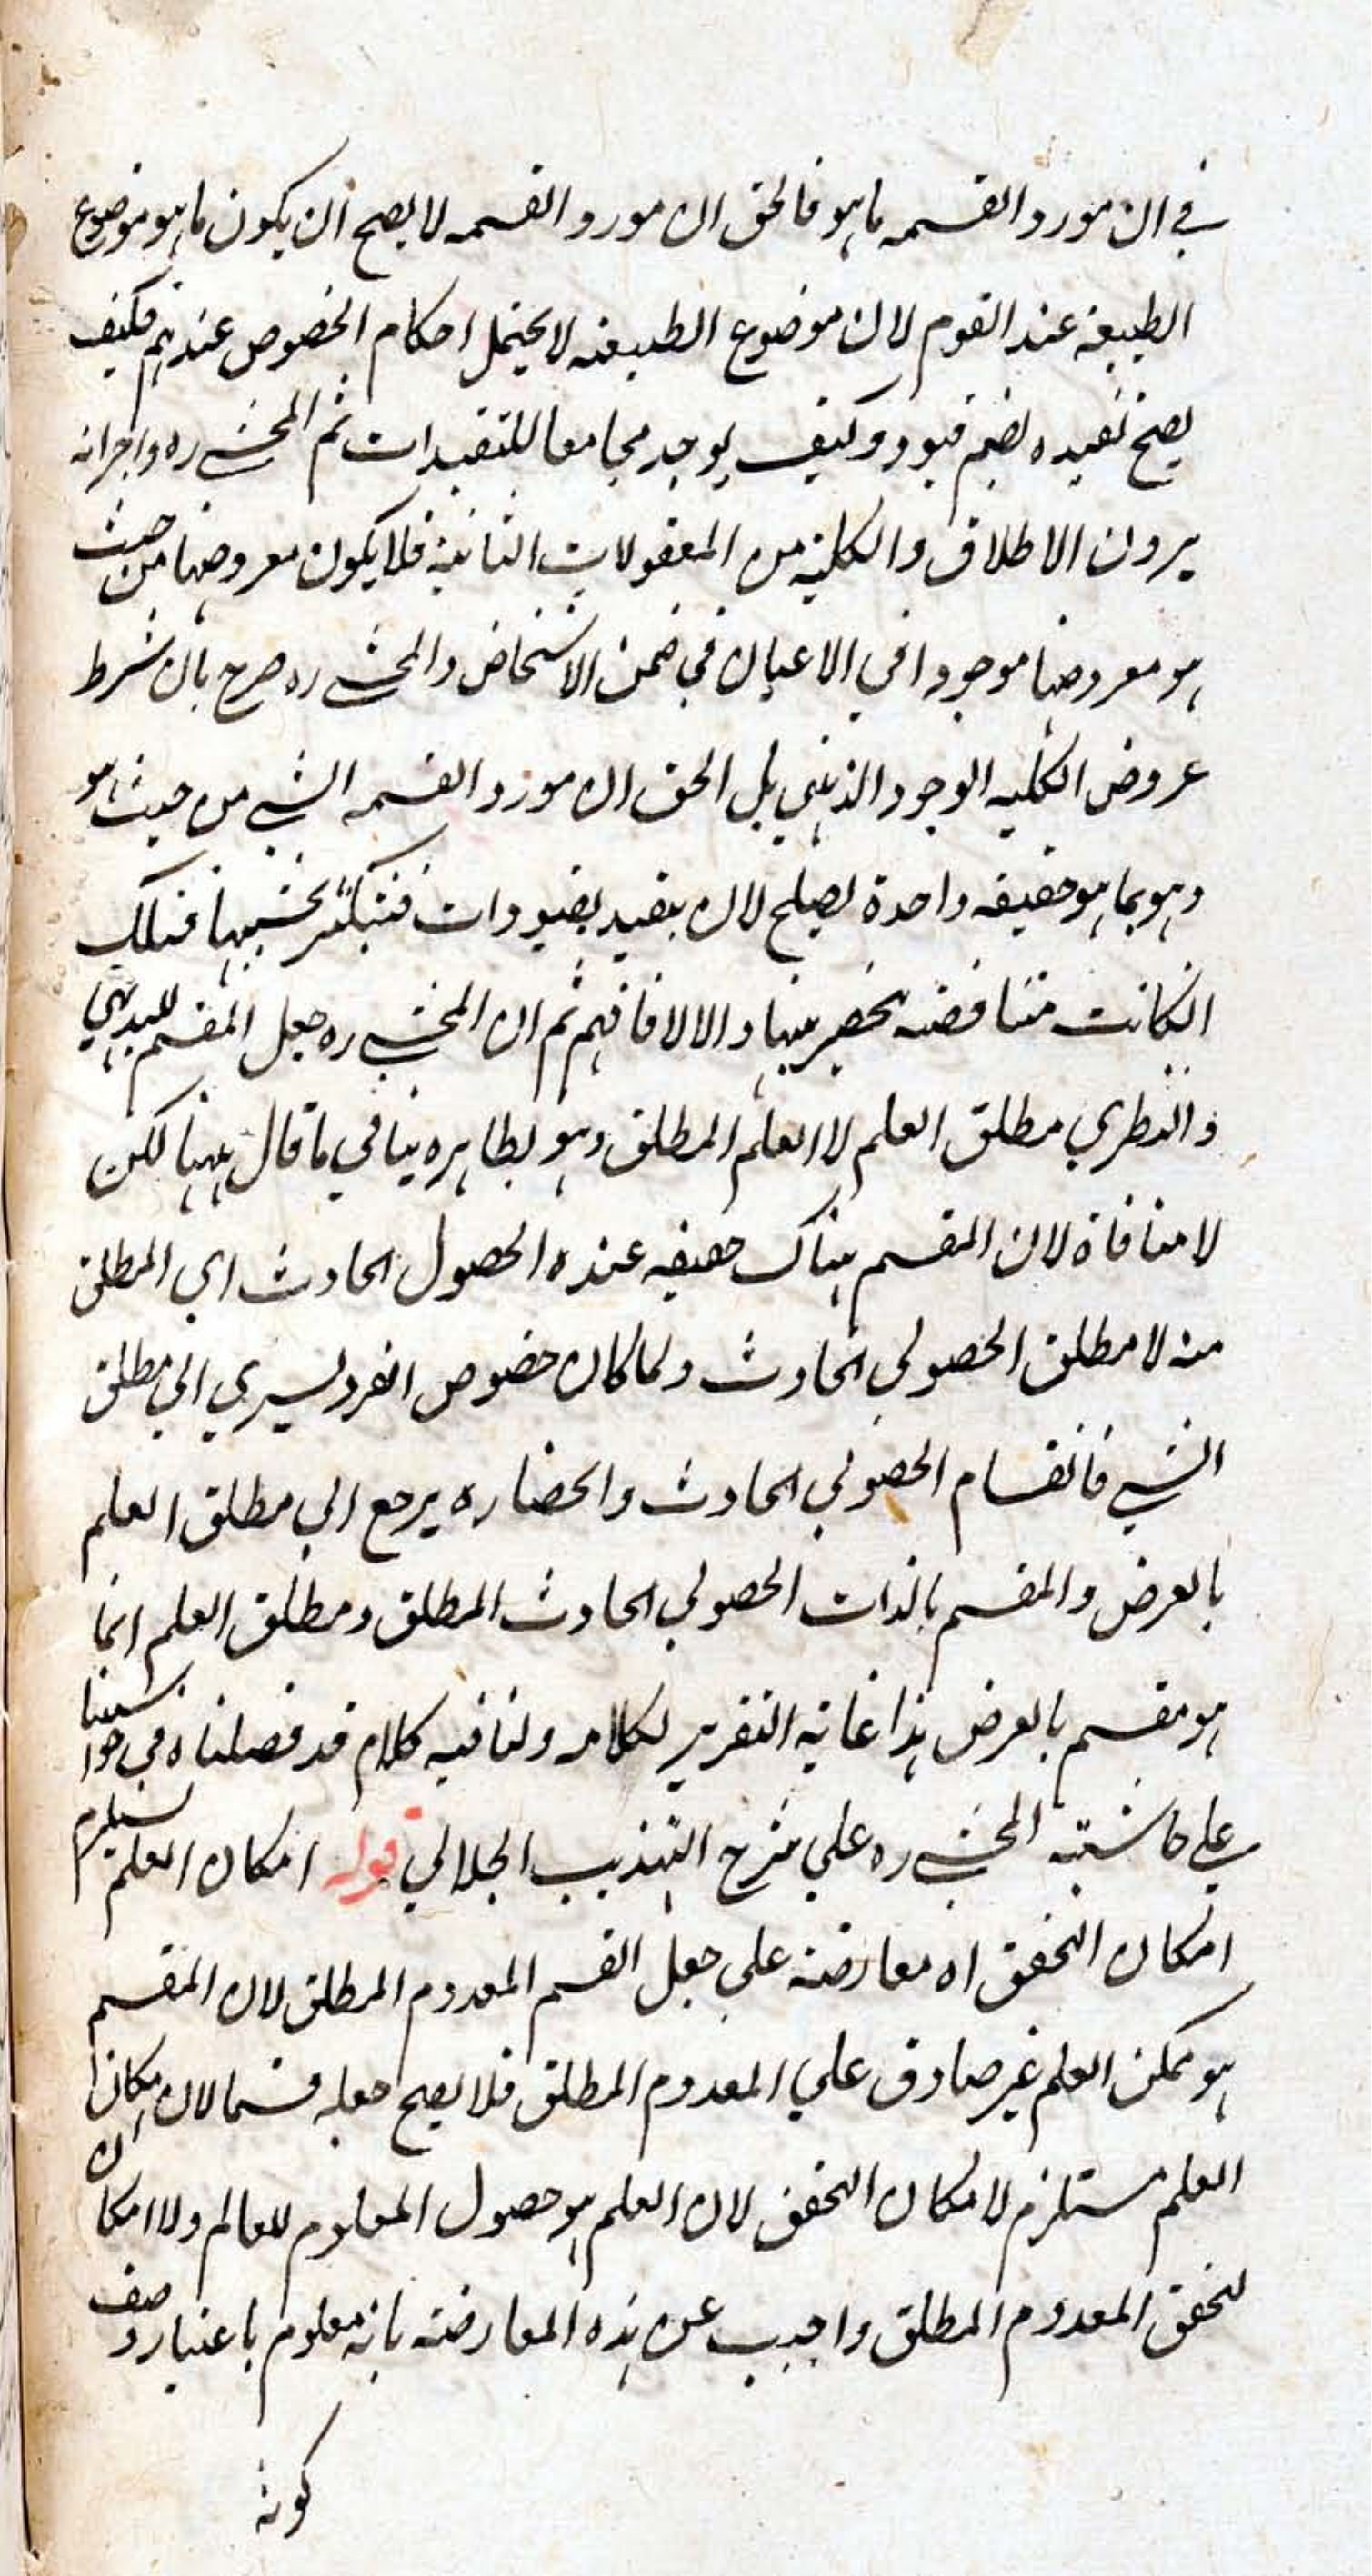 في ان مورد القسمه ما هو فالحق ان مورد القسمه لا يصح ان يكون ما هو موضوع
الطبيعة عند القوم لان موضوع الطبيعه لا يحتمل احكام الخصوص عندهم فكيف
يصح تقييده بضم قيود وكيف يوجد مجامعا للتقييدات ثم المحشي ره واجزابه
يرون الاطلاق والكلية من المعقولات الثانية فلا يكون معروضها من حيث
هو معروضها موجودا في الاعيان في ضمن الاشخاص والمحشي ره صرح بان شرط
عروض الكليه الوجود الذهني بل الحق ان مورد القسمه الشي من حيث هو
وهو بما هو حقيقه واحدة يصلح لان يتقيد بقيودات فتتكثر بحسبها فتلك
انكانت متناقضه تحصر فيها والا لا فافهم ثم ان المحشي ره جعل المقسم للبديهي
والنظري مطلق العلم لا العلم المطلق وهو بظاهره ينافي ما قال ههنا لكن
لا منافاة لان المقسم هناك حقيقه عنده الحصول الحادث اي المطلق
منه لا مطلق الحصولي الحادث ولما كان خصوص الفرد يسري الي مطلق
الشي فانقسام الحصولي الحادث واحضاره يرجع الي مطلق العلم
بالعرض والمقسم بالذات الحصولي الحادث المطلق ومطلق العلم انما
هو مقسم بالعرض هذا غاية التقرير لكلامه ولنا فيه كلام قد فصلناه في حواشينا
علي حاشيته المحشي ره علي شرح التهذيب الجلالي قوله امكان العلم يستلزم
امكان التحقق اه معارضة علي جعل القسم المعدوم المطلق لان المقسم
هو ممكن العلم غير صادق علي المعدوم المطلق فلا يصح جعله قسما لان امكان
العلم مستلزم لامكان التحقق لان العلم هو حصول المعلوم للعالم ولا امكان
لتحقق المعدوم المطلق واجيب عن هذه المعارضة بانه معلوم باعتبار وصف
كونه